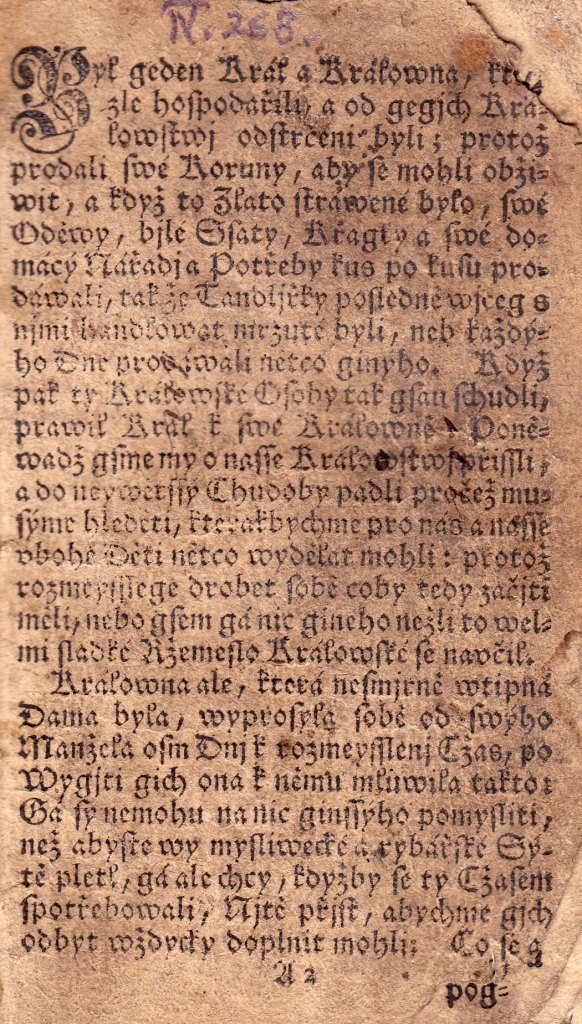 N. 268.
Byl geden Král a Králowna,
zle hospodařili, a od gegjch Krá-
lowstwj odstrčeni byli; protož
prodali swé Koruny, aby se mohli obži-
wit, a když to Zlato stráwené bylo, swé
Oděwy, bjlé Ssaty, Kragky a swé do-
mácý Nářadj a Potřeby kus po kusu pro-
dáwali, tak že Tandljřky posledně wjceg s
njmi handlowat mrzuté byli, neb každý-
ho Dne prodáwali nětco ginýho. Když
pak ty Králowské Osoby tak gsau schudli,
prawil Král k swé Králowně: Poně-
wadž gsme my o nasse Králowstwj přissli,
a do neywěrssý Chudoby padli pročež mu-
sýme hleděti, kterakbychme pro nás a nasse
vbohé Děti nětco wydělat mohli: protož
rozmeysslege drobet sobě coby tedy začjti
měli, nebo gsem gá nic gineho nežli to wel-
mi sladké Ržemeslo Králowské se navčil.
Králowna ale, která nesmjrně wtipná
Dáma byla, wyprosyla sobě od swýho
Manžela osm Dnj k rozmeysslenj Cžas, po
Wygjti gich ona k němu mluwila takto:
Gá sy nemohu na nic ginssýho pomysliti,
než abyste wy mysliwecké a rybářské Sý-
tě pletl, gá ale chcy, kdyžby se ty Cžasem
spotřebowali, Njtě přjst, abychme gjch
odbyt wždycky doplnit mohli: Co se g
A 2
pog-